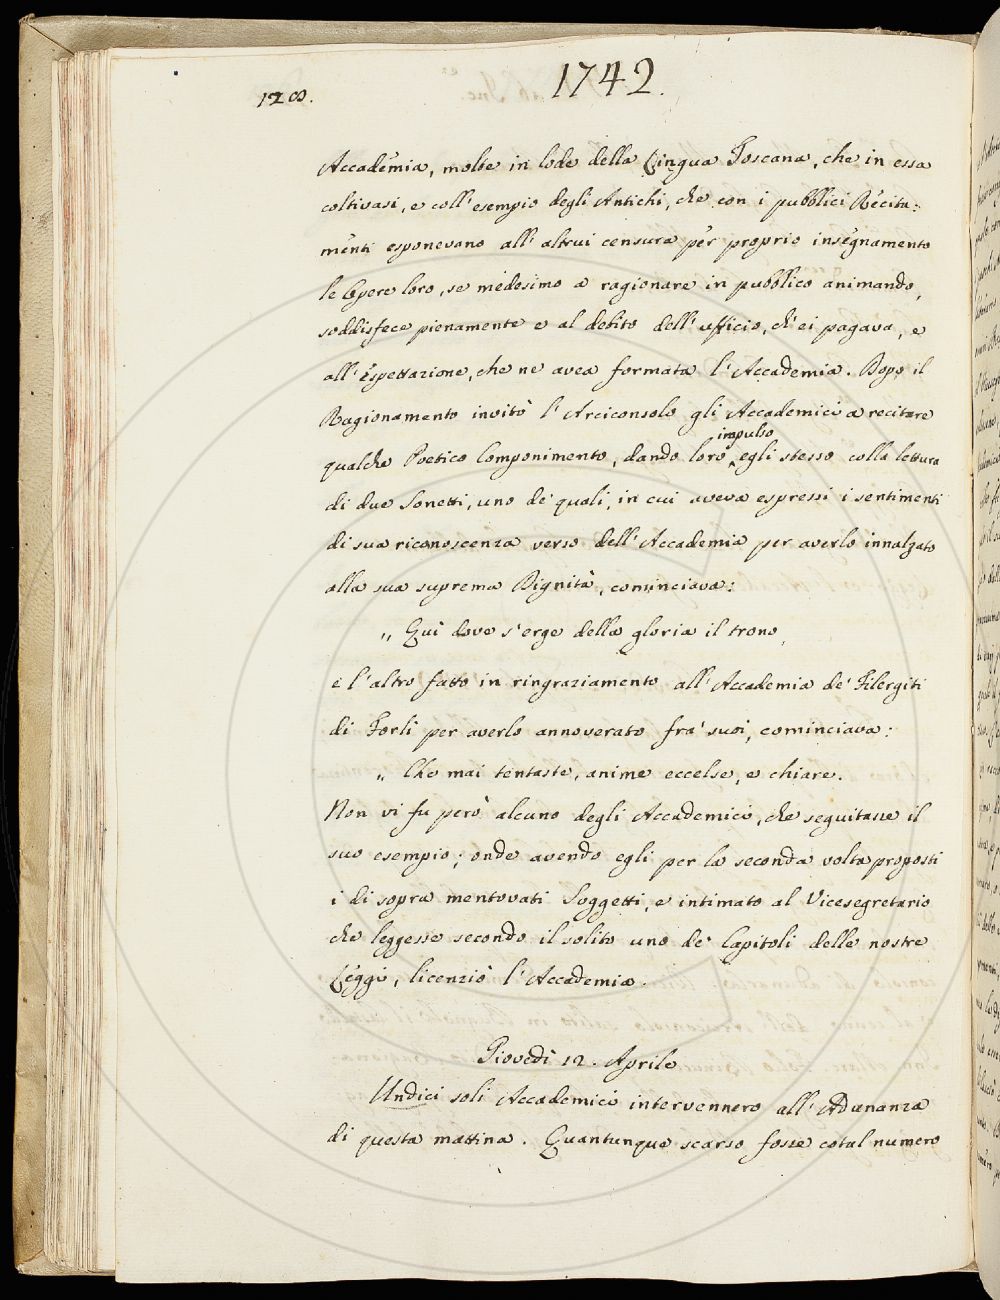 128.
1742.
Accademia, molte in lode della Lingua Toscana, che in essa
coltivasi, e coll' esempio degli Antichi, che con i pubblici Recita=
menti esponevano all' altrui censura per proprio insegnamento
le Opere loro, se medesimo a ragionare in pubblico animando,
soddisfece pienamente e al debito dell' uffizio, ch' ei pagava, e
all' Espettazione, che ne avea formata l' Accademia. Dopo il
Ragionamento invitò l' Arciconsolo gli Accademici a recitare
impulso
qualche Poetico Componimento, dando loro egli stesso colla lettura
di due Sonetti, uno de' quali, in cui aveva espressi i sentimenti
di sua riconoscenza verso dell' Accademia per averlo innalzato
alla sua suprema Dignità, cominciava:
„ Quì dove s' erge della gloria il trono,
e l' altro fatto in ringraziamento all' Accademia de' Filergiti
di Forlì per averlo annoverato fra' suoi, cominciava:
„ Che mai tentaste, anime eccelse, e chiare.
Non vi fu però alcuno degli Accademici, che seguitasse il
suo esempio; onde avendo egli per la seconda volta proposti
i di sopra mentovati Soggetti, e intimato al Vicesegretario
che leggesse secondo il solito uno de' Capitoli delle nostre
Leggi, licenziò l' Accademia.
Giovedì 12. Aprile
Undici soli Accademici intervennero all' Adunanza
di questa mattina. Quantunque scarso fosse cotal numero